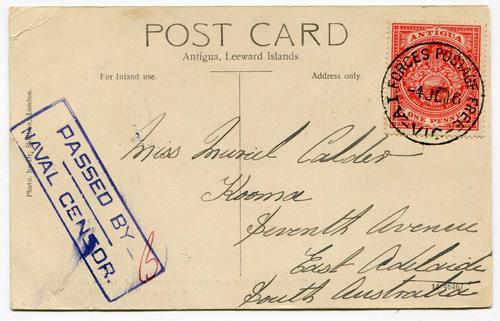 POST CARD
Antigua, Leeward Islands
For Inland use.
Address only.
ANTIGUA
ONE PENNY
A.I. FORCES POSTAGE FREE
-4 JE 16
VIC.
PASSED BY
NAVAL CENSOR.
Miss Muriel Calder
Kooma
Seventh Avenue
East Adelaide
South Australia
Photo. London.